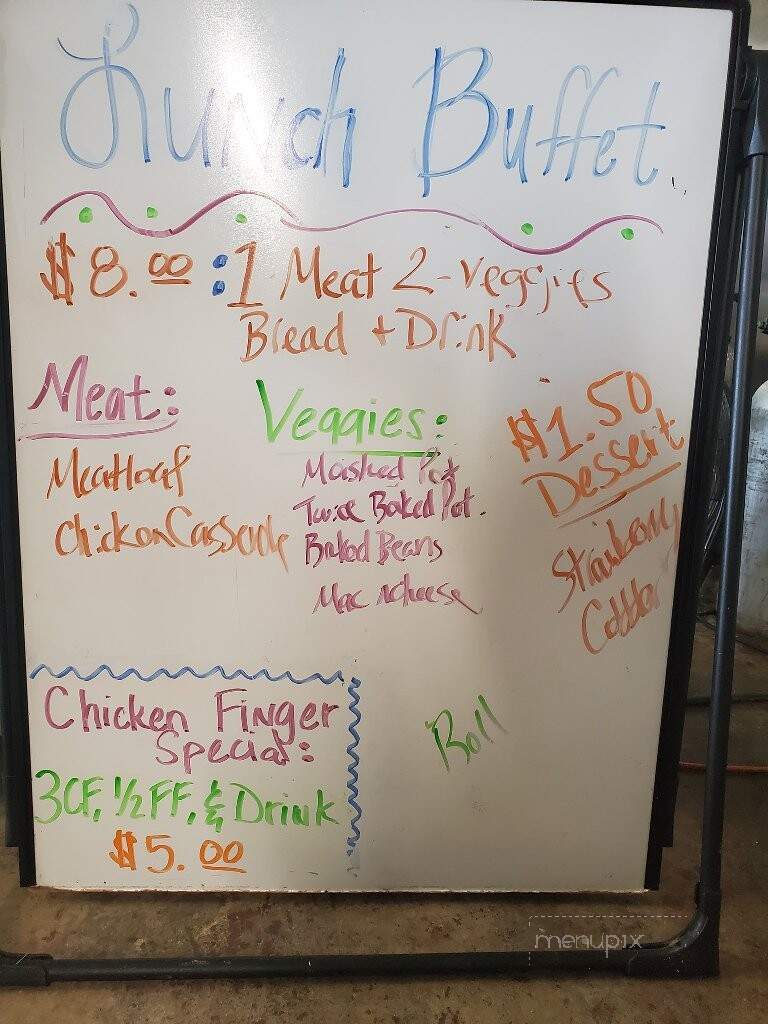 Lunch Buffet
$8.00 : 1 Meat 2-Veggies
Bread + Drink
Meat:
Meatloaf
Chicken Casserole
Veggies:
Mashed Pot
Twice Baked Pot.
Baked Beans
Mac ncheese
$1.50
Dessert
Strawberry
Cobbler
Roll
Chicken Finger
Special:
3CF, 1/2 FF, & Drink
$5.00
menupix